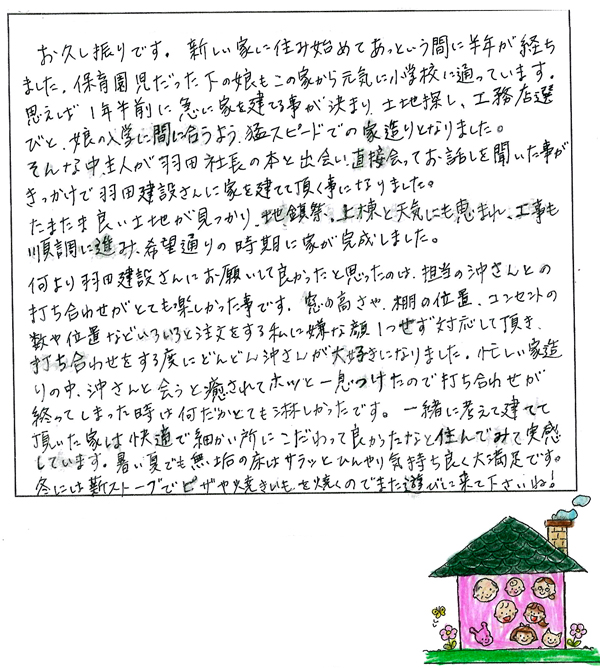 お久し振りです。新しい家に住み始めてあっという間に半年が経ち
ました。保育園児だった下の娘もこの家から元気に小学校に通っています。
思えば1年半前に急に家を建てる事が決まり、土地探し、工務店選
びと、娘の入学に間に合うよう、猛スピードでの家造りとなりました。
そんな中、主人が羽田社長の本と出会い、直接会ってお話しを聞いた事が
きっかけで羽田建設さんに家を建てて頂く事になりました。
たまたま良い土地が見つかり、地鎮祭、上棟と天気にも恵まれ、工事も
順調に進み、希望通りの時期に家が完成しました。
何より羽田建設さんにお願いして良かったと思ったのは、担当の沖さんとの
打ち合わせがとても楽しかった事です。窓の高さや、棚の位置、コンセントの
数や位置などいろいろと注文をする私に嫌な顔1つせず対応して頂き、
打ち合わせをする度にどんどん沖さんが大好きになりました。忙しい家造
りの中、沖さんと会うと癒されてホッと一息つけたので打ち合わせが
終ってしまった時は何だかとても淋しかったです。一緒に考えて建てて
頂いた家は快適で細かい所にこだわって良かったなと住んでみて実感
しています。暑い夏でも無垢の床はサラッとひんやり気持ち良く大満足です。
冬には薪ストーブでピザや焼きいもを焼くのでまた遊びに来て下さいね!